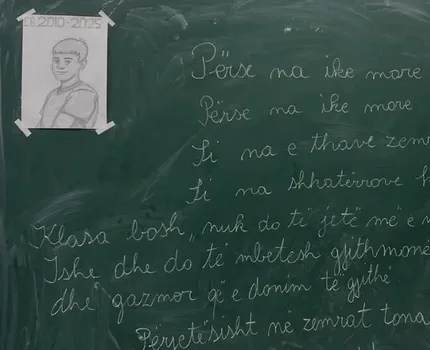 2010-2025
Përse na ike more
Përse na ike more
Ti na e thave zemr
Ti na shkatërrove
Klasa bosh, nuk do të jetë më e
Ishe dhe do të mbetesh gjithmonë
dhe gazmor që e donim të gjithë
Përjetësisht në zemrat tona